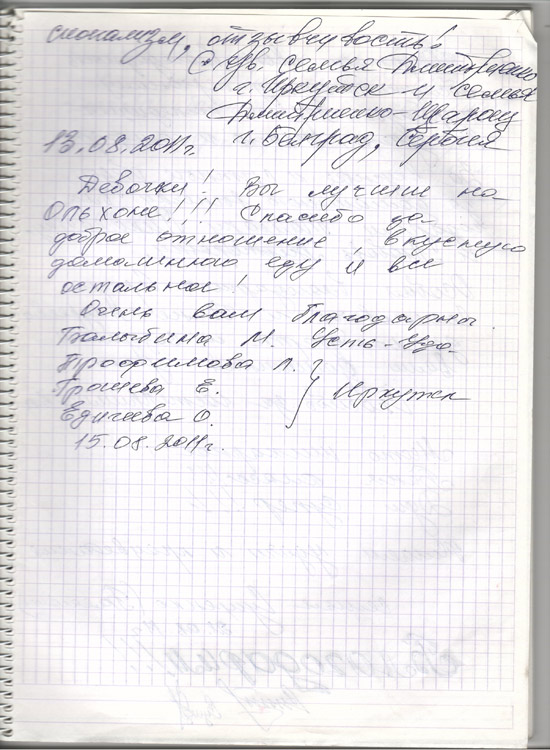 сионализм, отзывчивость!
С ув. семья Дмитриенко
г. Иркутск и семья
Дмитриенко-Шарац
г. Белград, Сербия
13.08.2011г.
Девочки! Вы лучшие на
Ольхоне!!! Спасибо за
доброе отношение, вкусную
домашнюю еду и все
остальное!
Очень вам благодарны.
Балыбина М. Усть-Уда
Трофимова Л.
Грачева Е.
Иркутск
Едичева О.
15.08.2011г.